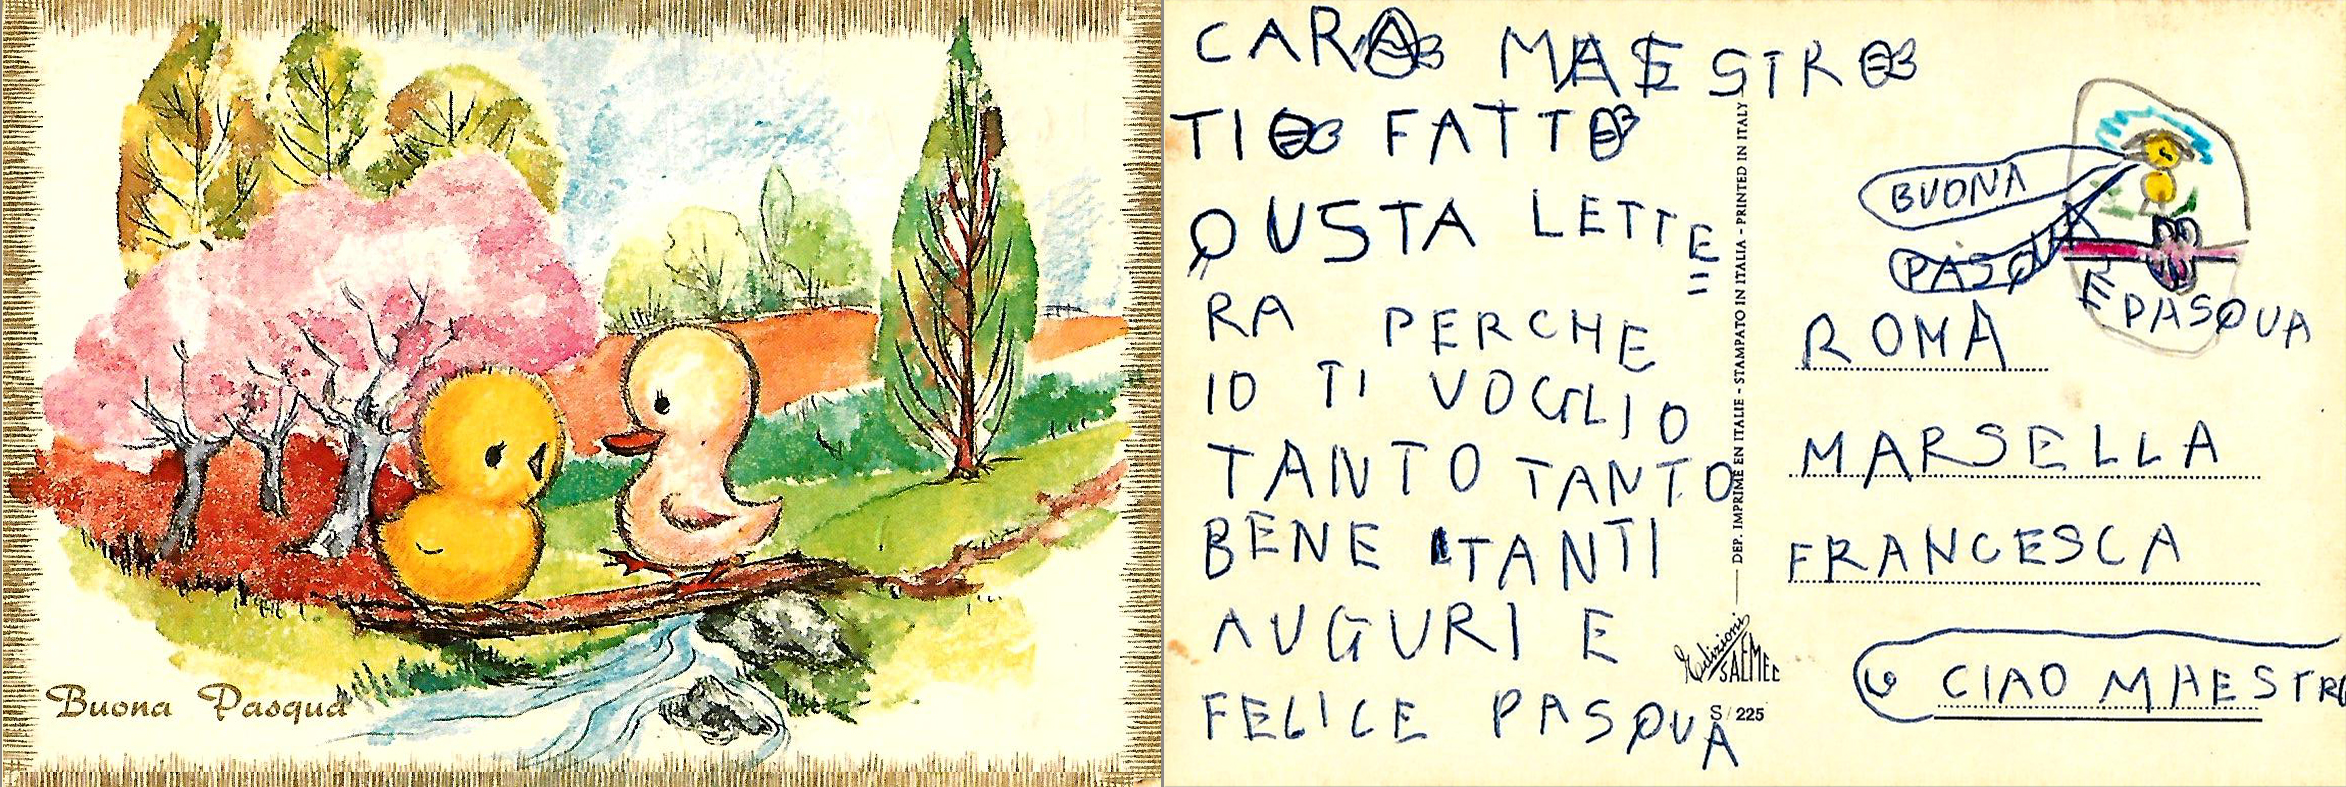 Buona Pasqua
CARO MAESTRO
TI O FATTO
QUSTA LETTE
RA PERCHE
IO TI VOGLIO
TANTO TANTO
BENE TANTI
AUGURI E
FELICE PASQUA
DEP. IMPRIMÉ EN ITALIE - STAMPATO IN ITALIA - PRINTED IN ITALY
Edizioni
SAEMEC
S/225
BUONA
PASQUA
È PASQUA
ROMA
MARSELLA
FRANCESCA
CIAO MAESTRO